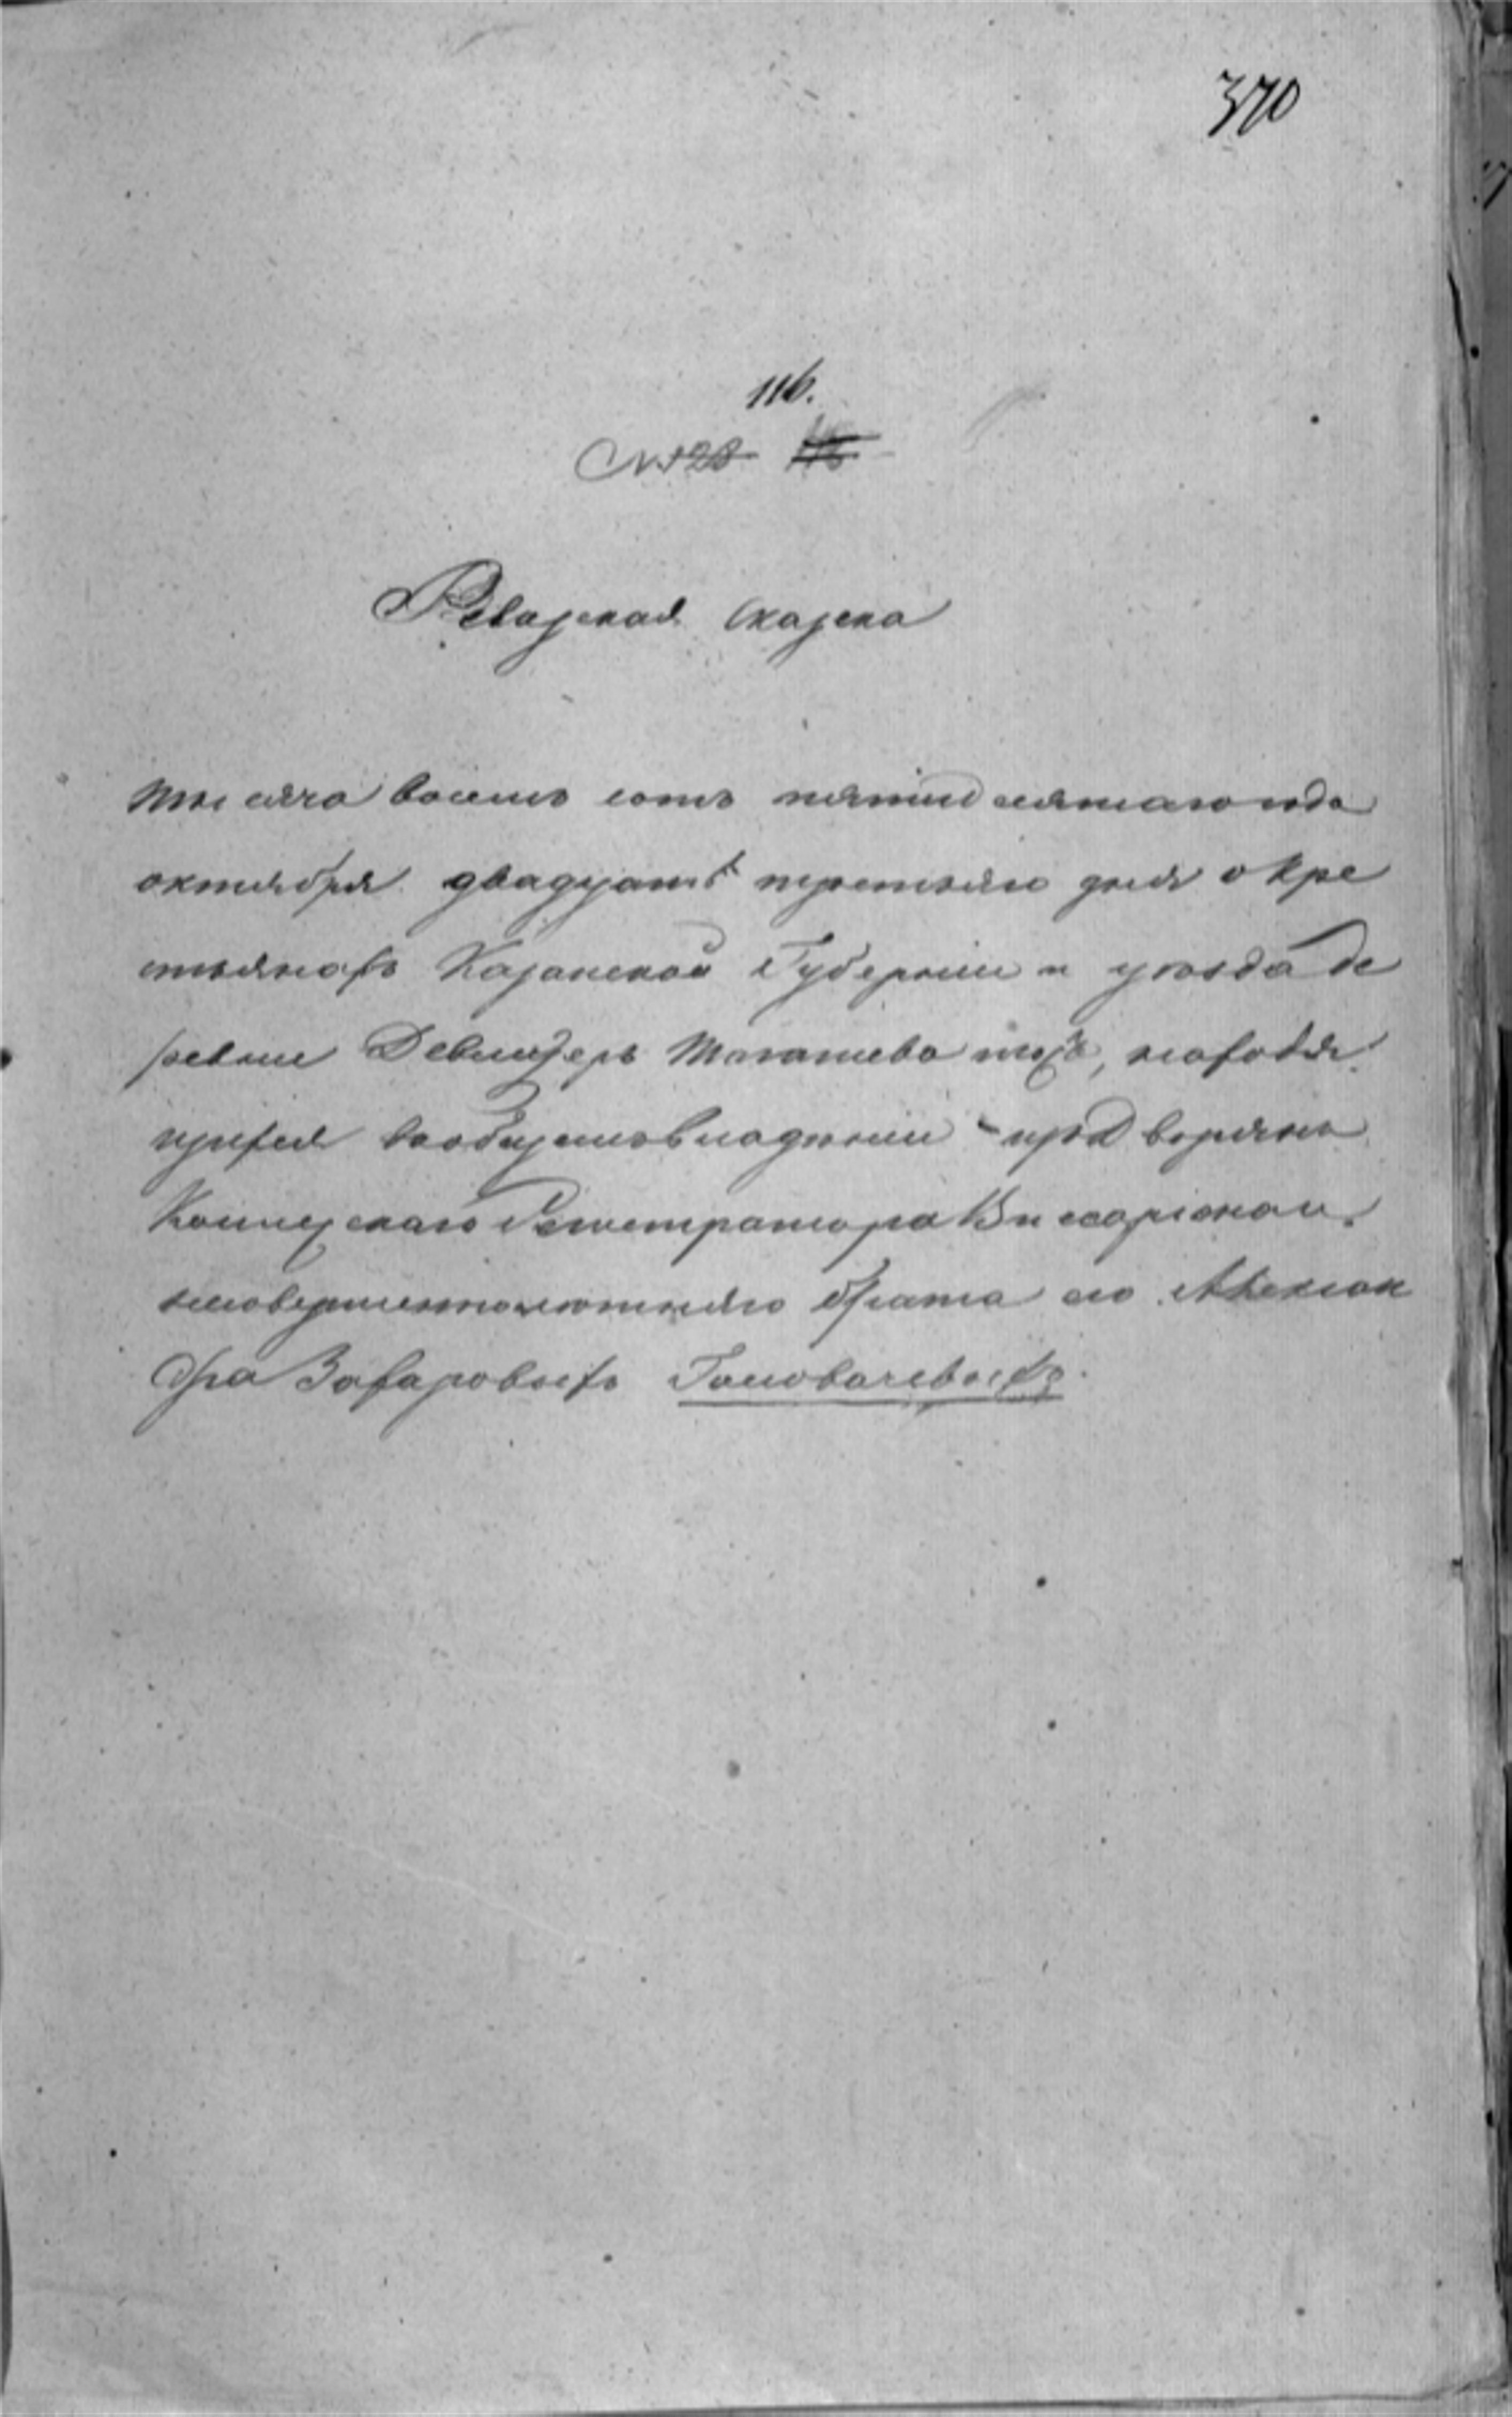 370
116.
№ 128
Ревизская Сказка
тысяча восемь сотъ пятидесятаго года
октября двадцать третьяго дня о кре
стьянахъ Казанской Губернии и уезда де
ревни Девлизерь тожъ, находя
щихся во общемъ владении дворянъ
Коллежскаго Регистратора Висариона и
несовершеннолетняго брата его Алексан
дра Захаровыхъ Головачевыхъ